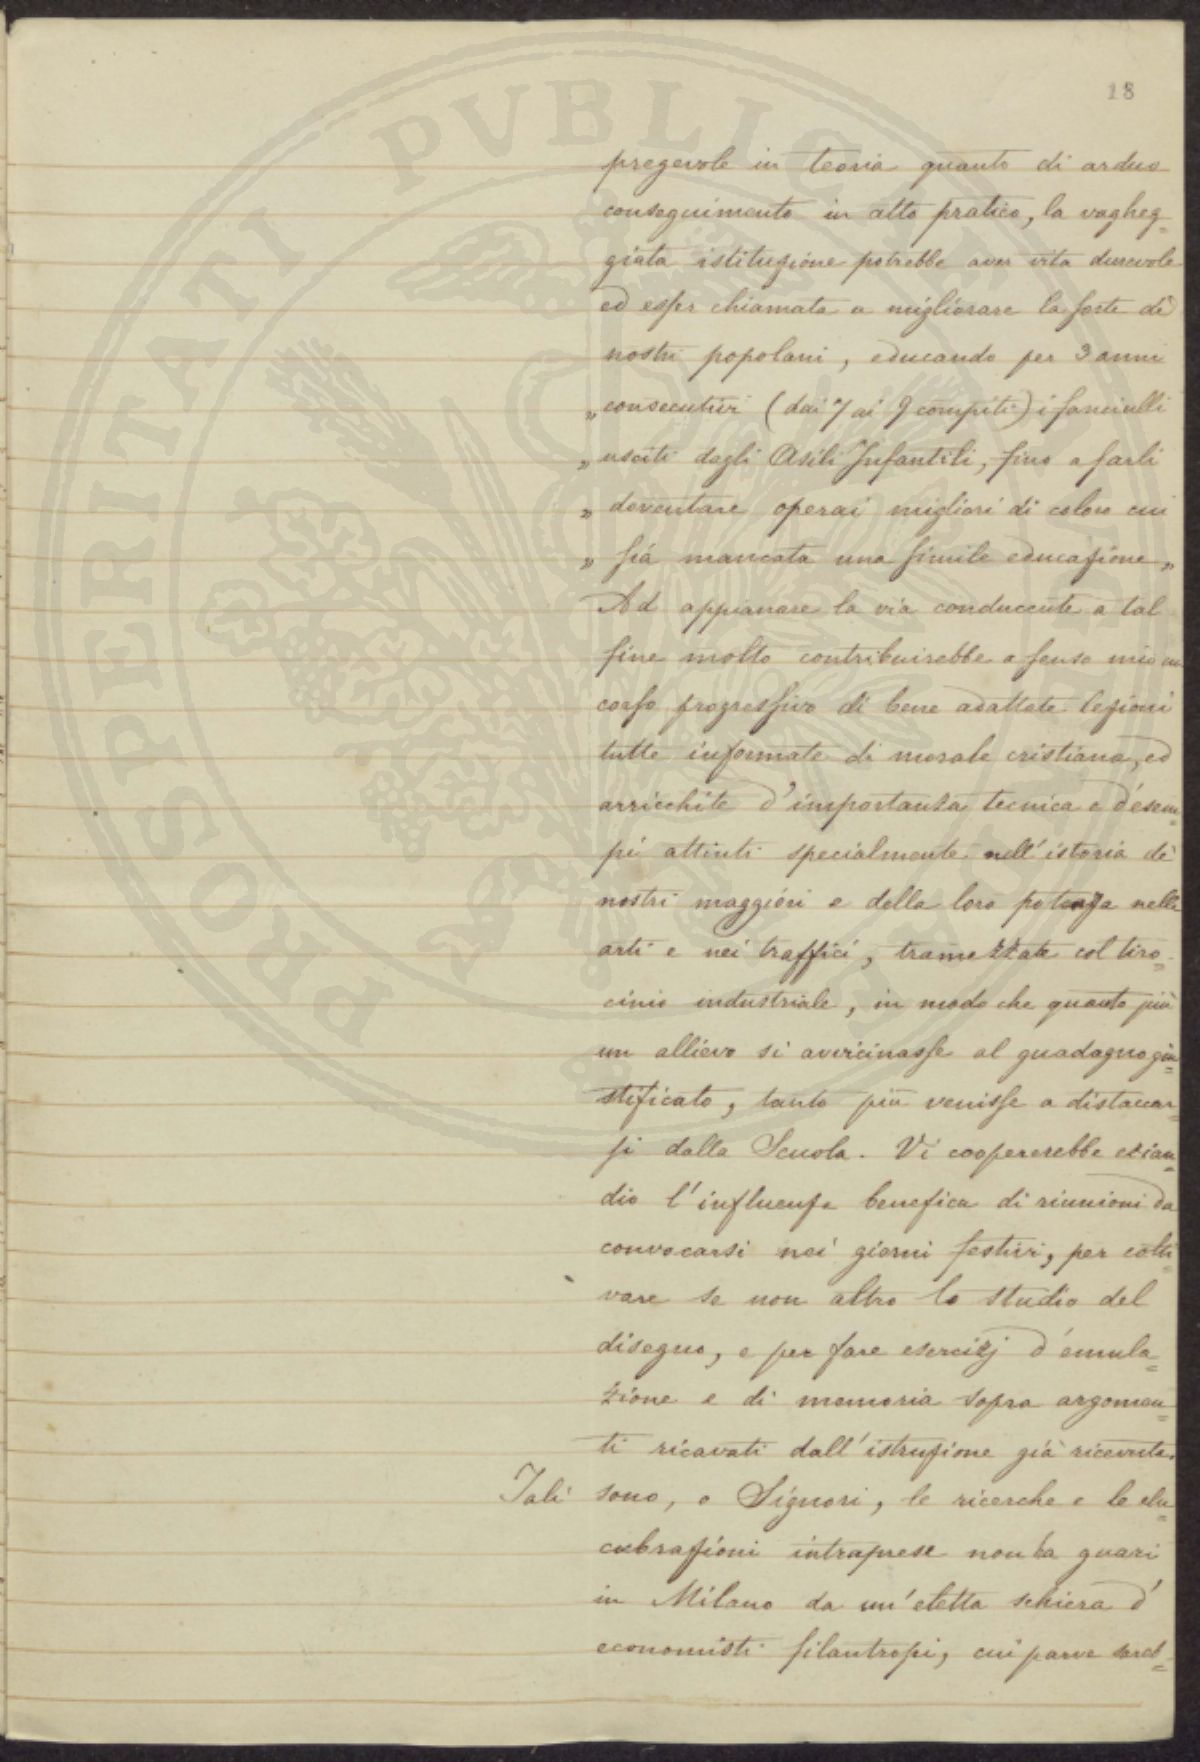 18
pregevole in teoria quanto di arduo
conseguimento in atto pratico, la vagheg=
giata istituzione potrebbe aver vita durevole
ed esser chiamata a migliorare la sorte de'
nostri popolani, educando per 3 anni
„ consecutivi (dai 7 ai 9 compiti) i fanciulli
„ usciti dagli Asili Infantili, fino a farli
„ doventare operai migliori di coloro cui
„ sia mancata una simile educazione „
Ad appianare la via conducente a tal
fine molto contribuirebbe a senso mio un
corso progressivo di bene adattate lezioni
tutte informate di morale cristiana, ed
arricchite d'importanza tecnica e d'esem=
pi attinti specialmente nell'istoria de'
nostri maggiori e della loro potenza nelle
arti e nei traffici, tramezzate col tiro=
cinio industriale, in modo che quanto più
un allievo si avvicinasse al guadagno giu=
stificato, tanto più venisse a distaccar=
si dalla Scuola. Vi coopererebbe ezian=
dio l'influenza benefica di riunioni da
convocarsi nei giorni festivi, per colti=
vare se non altro lo studio del
disegno, e per fare esercizj d'emula=
zione e di memoria sopra argomen=
ti ricavati dall'istruzione già ricevuta.
Tali sono, o Signori, le ricerche e le elu=
cubrazioni intraprese non ha guari
in Milano da un'eletta schiera d'
economisti filantropi, cui parve